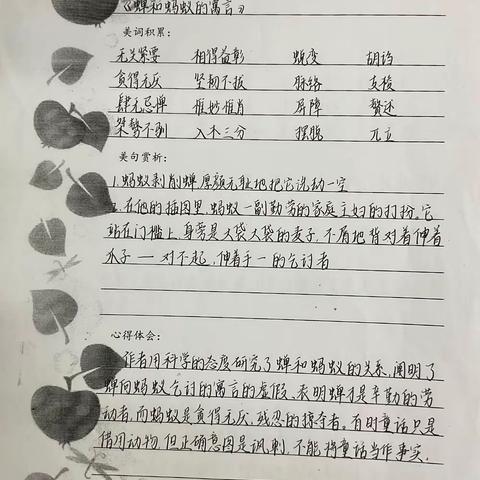 《蝉和蚂蚁的寓言》
美词积累：
无关紧要 相得益彰 蜕变 胡诌
贪得无厌 坚韧不拔 脉络 支棱
肆无忌惮 惟妙惟肖 屏障 赘述
桀骜不驯 入木三分 摆脱 兀立
美句赏析：
1.蚂蚁剥削蝉,厚颜无耻地把它洗劫一空
2.在他的插图里,蚂蚁一副勤劳的家庭主妇的打扮。它
站在门槛上,身旁是大袋大袋的麦子,不屑把背对着伸着
爪子 — 对不起,伸着手一的乞讨者
心得体会：
作者用科学的态度研究了蝉和蚂蚁的关系,阐明了
蝉向蚂蚁乞讨的寓言的虚假、表明蝉才是辛勤的劳
动者,而蚂蚁是贪得无厌,残忍的掠夺者。有时童话只是
借用动物,但正确意图是讽刺,不能将童话当作事实.